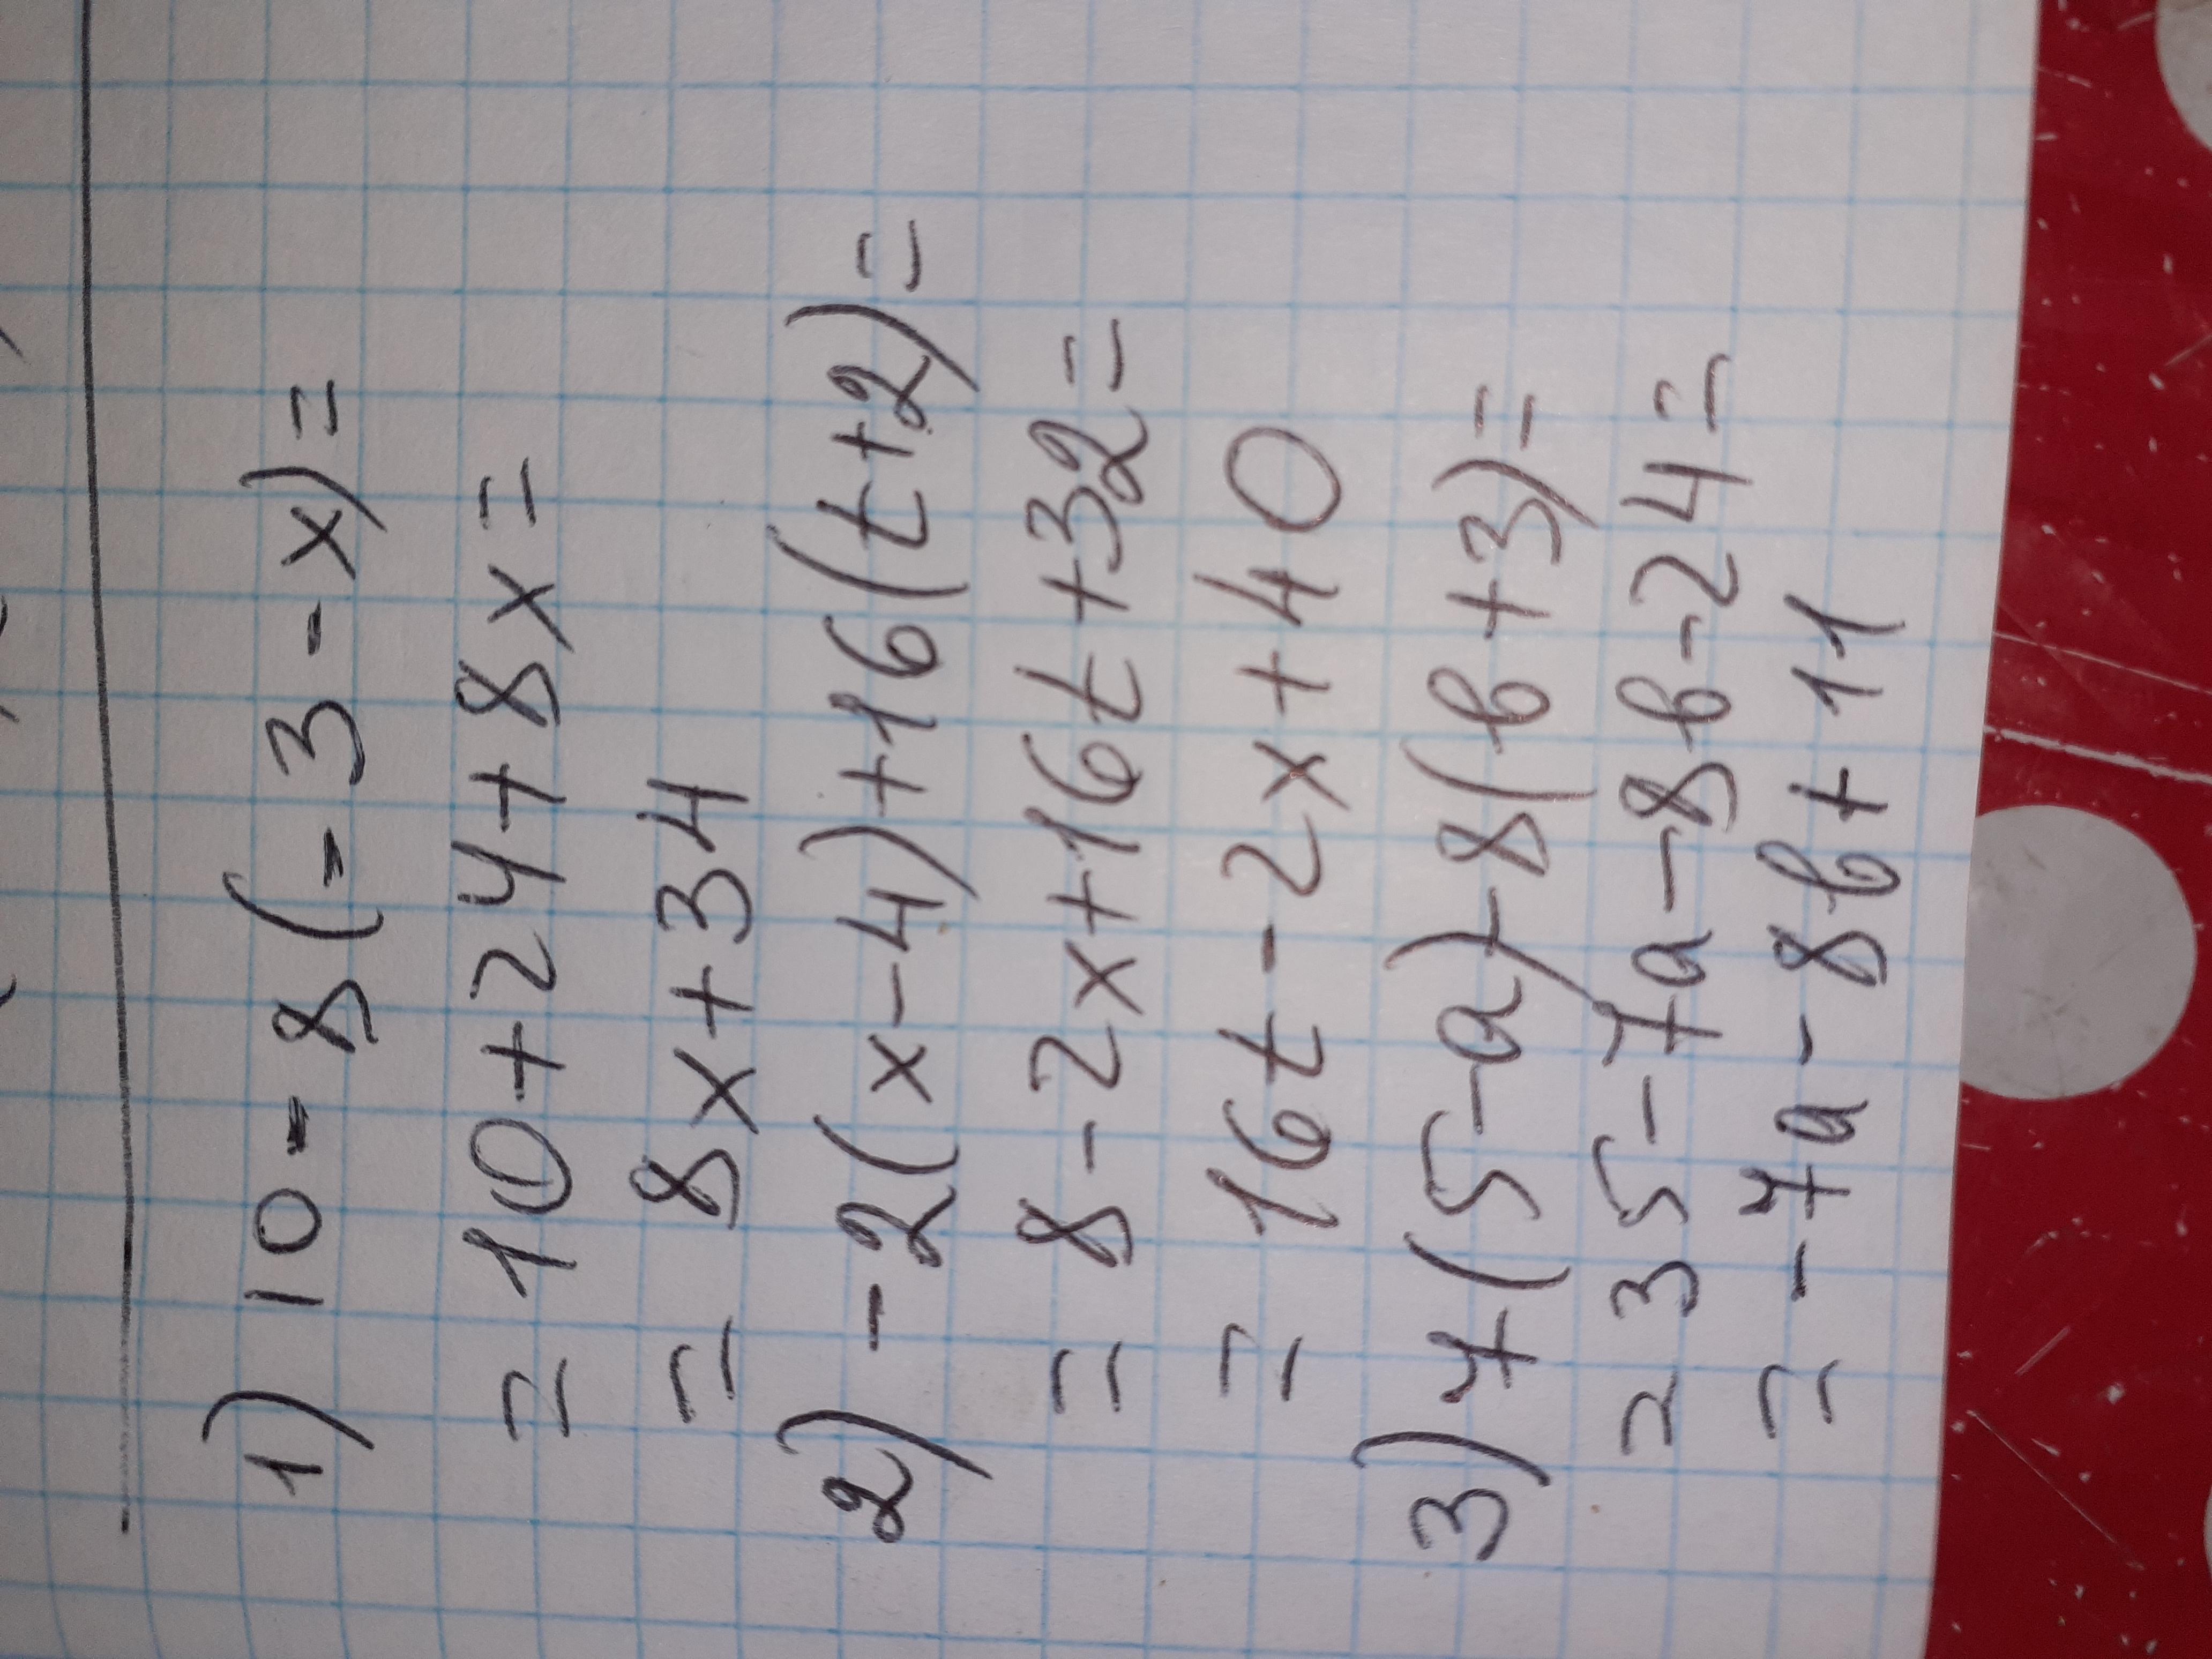 1) 10-8(-3-x)=
=10+24+8x=
= 8x+34
2) -2(x-4)+16(t+2)=
= 8-2x+16t+32=
= 16t-2x+40
3) 7(5-a)-8(b+3)=
= 35-7a-8b-24=
= -7a-8b+11